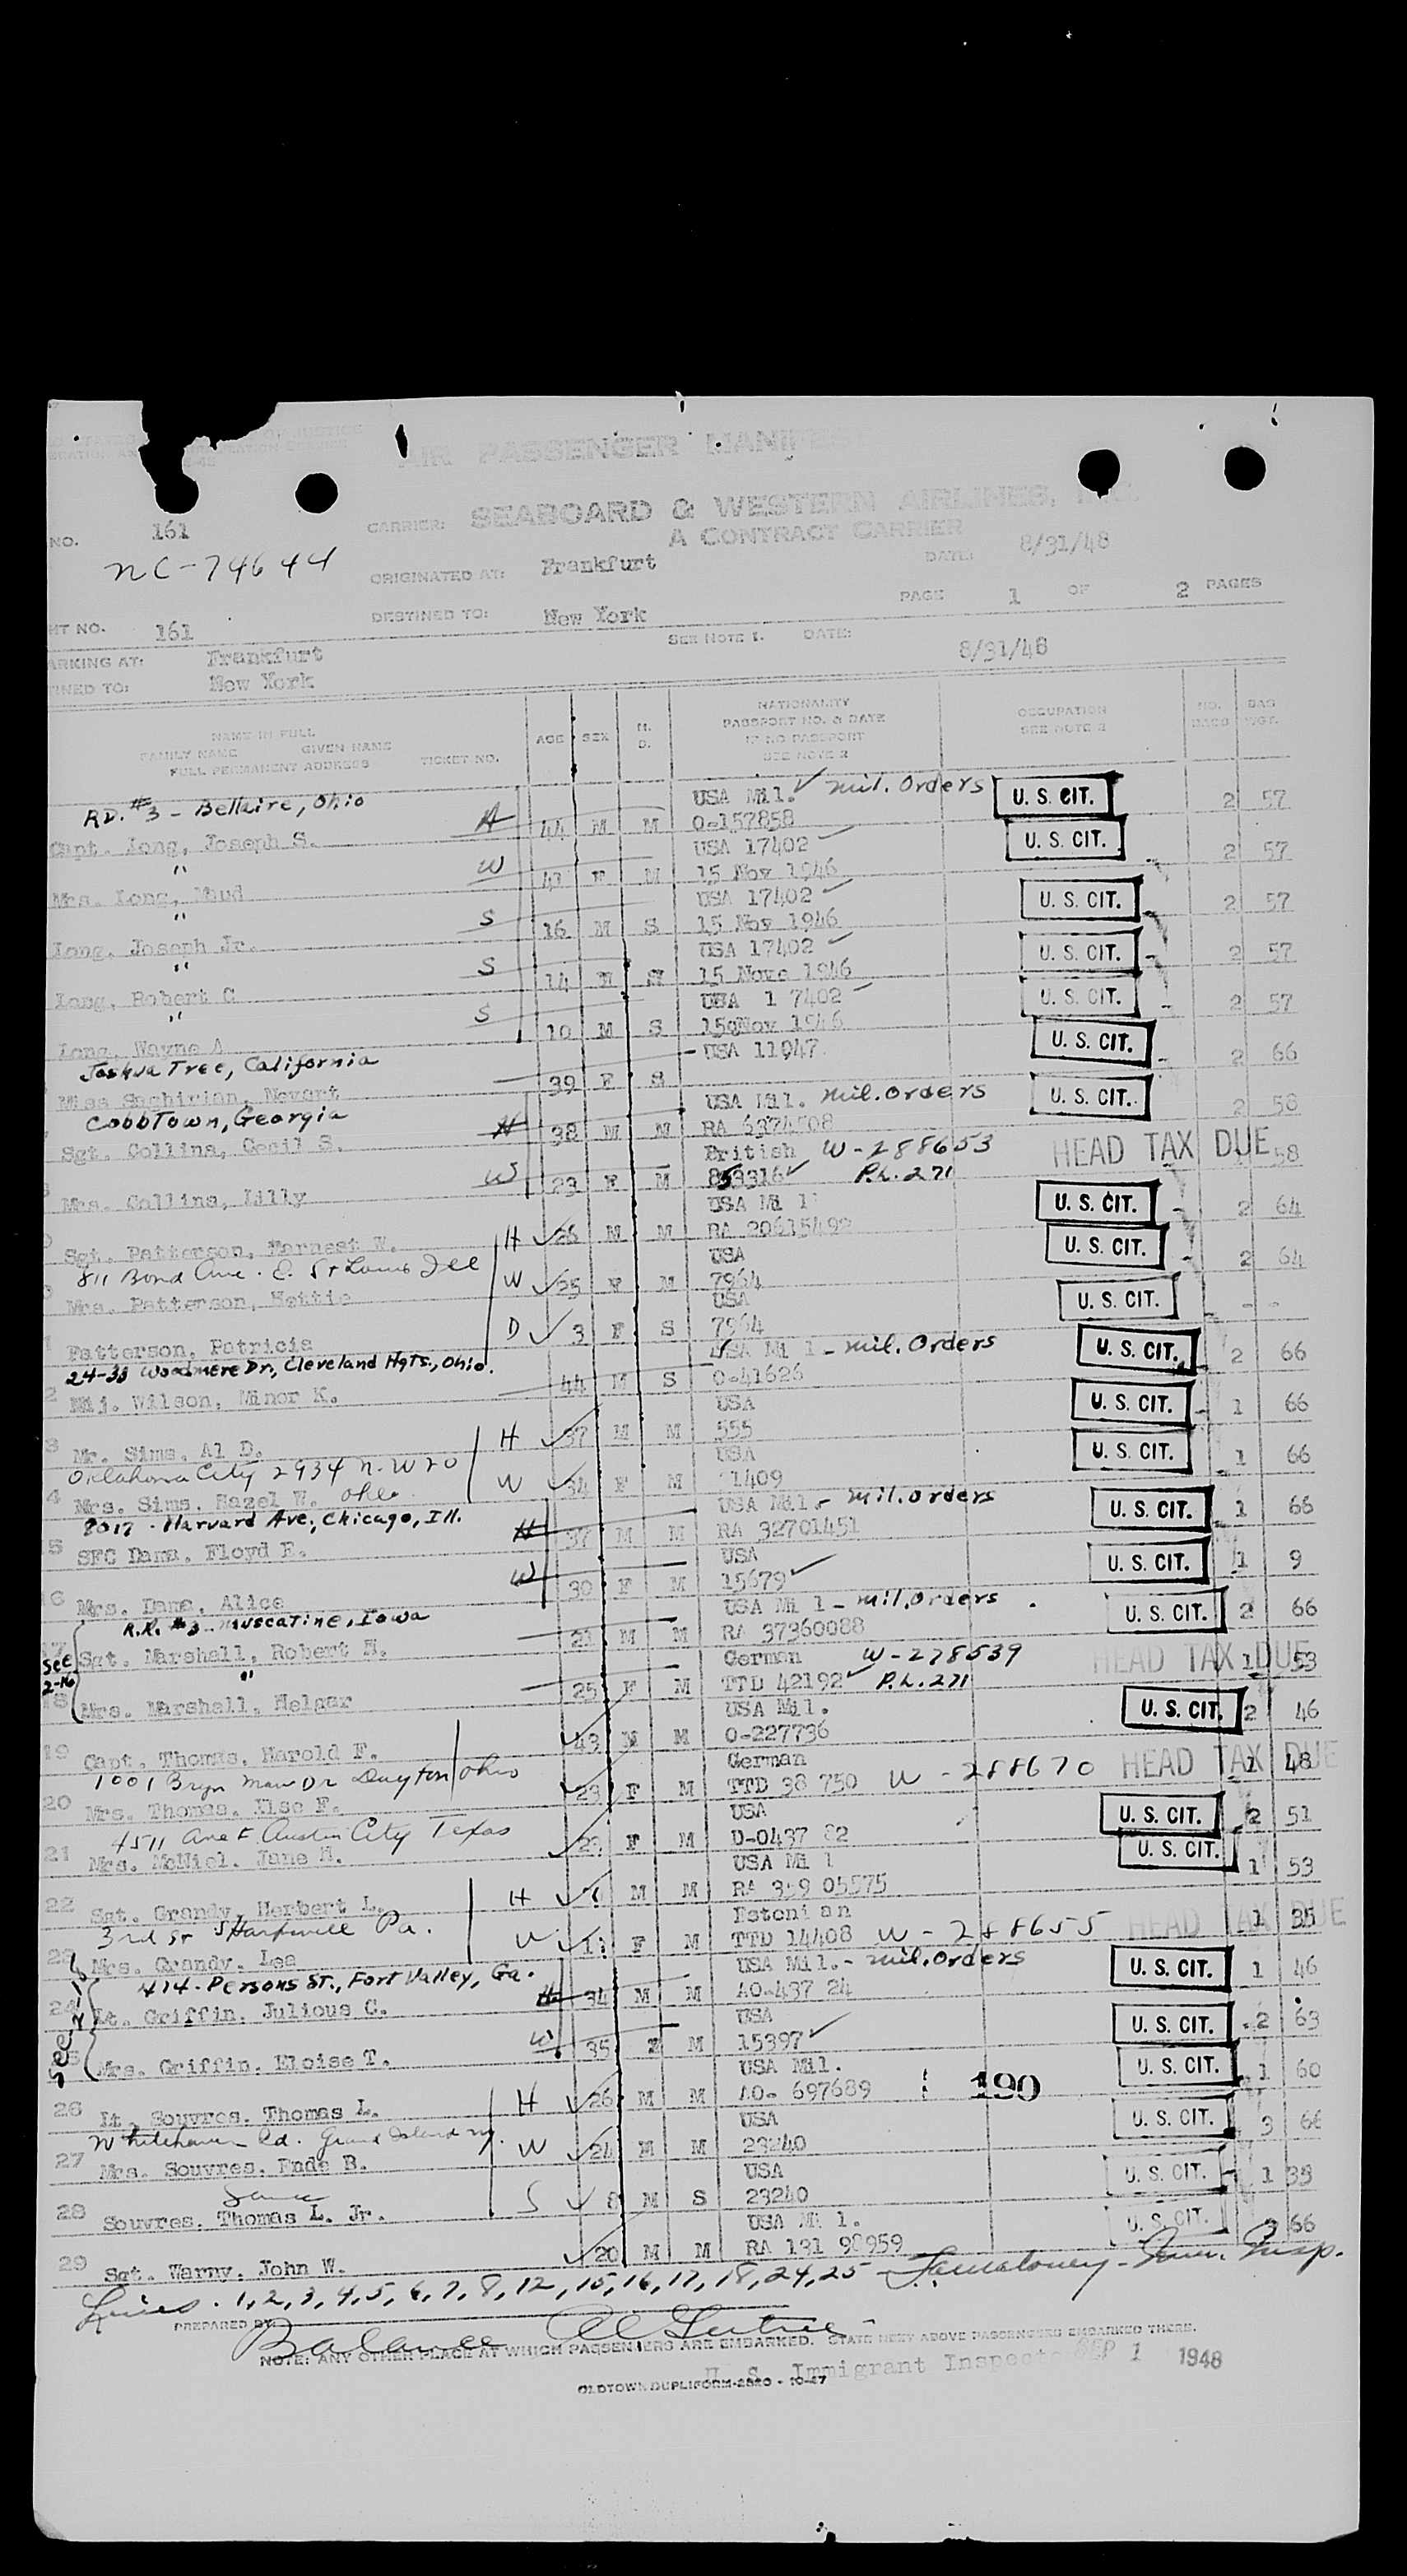 AIR PASSENGER MANIF
NO. 161 CARRIER: SEABOARD & WESTERN AIRLINES,
A CONTRACT CARRIER
NC-74644 ORIGINATED AT: Frankfurt DATE: 8/31/48
PAGE 1 OF 2 PAGES
HT NO. 161 DESTINED TO: New York SEE NOTE 1. DATE: 8/31/48
ARKING AT: Frankfurt
INED TO: New York
NAME IN FULL
FAMILY NAME GIVEN NAME
FULL PERMANENT ADDRESS TICKET NO. AGE SEX M. D. NATIONALITY PASSPORT NO. & DATE IF NO PASSPORT SEE NOTE 2 OCCUPATION SEE NOTE 2 NO. BAGS BAG WGT.
RD. #3 - Bellaire, Ohio USA Mil. ✓ mil. Orders U. S. CIT. 2 57
Capt. Long, Joseph S. H 44 M M O-157858
" W USA 17402 ✓ U. S. CIT. 2 57
Mrs. Long, Maud 41 F M 15 Nov 1946
" S USA 17402 ✓ U. S. CIT. 2 57
Long, Joseph Jr. 16 M S 15 Nov 1946
" S USA 17402 ✓ U. S. CIT. 2 57
Long, Robert C 14 15 Nove 1946
" S USA 1 7402 U. S. CIT. 2 57
Long, Wayne A 10 M S Nov 1946
Joshua Tree, California USA 11047 U. S. CIT. 2 66
Miss Novart 39 F S
Cobbtown, Georgia USA Mil. mil. orders U. S. CIT. 2 58
Sgt. Collins, Cecil S. H 38 M M RA
W British W-288653 HEAD TAX DUE 58
Mrs. Collins, Lilly 23 F M ✓ P.L. 271
USA Mi l U. S. CIT. 2 64
Sgt. Patterson, Earnest W. H ✓ 26 M M RA 20615492
811 Bond Ave. E. St Louis Ill USA U. S. CIT. 2 64
Mrs. Patterson, Hettie W ✓ 25 F M 7964
USA U. S. CIT. - -
Patterson, Patricia D ✓ 3 F S 7964
24-33 Woodmere Dr., Cleveland Hgts., Ohio. USA Mi l - mil. Orders U. S. CIT. 2 66
2 Maj. Wilson, Minor K. 44 M S O-41626
USA U. S. CIT. 1 66
3 Mr. Sims, Al D. H ✓ 37 M M 555
Oklahoma City 2934 N.W 20 USA U. S. CIT. 1 66
4 Mrs. Sims, Hazel W. Okla. W ✓ 34 F M 1409
8017 - Harvard Ave., Chicago, Ill. USA Mil. - mil. orders U. S. CIT. 1 66
5 SFC Dama, Floyd E. H 37 M M RA 32701451
W USA U. S. CIT. 1 9
16 Mrs. Dama, Alice 30 F M 15679 ✓
R.R. #3 - Muscatine, Iowa USA Mi l - mil. orders U. S. CIT. 2 66
17 Sgt. Marshall, Robert H. M M RA 37360088
See 2-16 " German W-278539 HEAD TAX DUE 1 53
18 Mrs. Marshall, Helgar 25 F M TTD 42192 ✓ P.L. 271
USA Mil. U. S. CIT. 2 46
19 Capt. Thomas, Harold F. ✓ 43 M M O-227736
1001 Bryn Mawr Dr Dayton Ohio German HEAD TAX DUE 1 48
20 Mrs. Thomas, Else F. ✓ 23 F M TTD 38 750 W-288670
4511 Ave F Austin City Texas USA U. S. CIT. 2 51
21 Mrs. McNiel, Jane H. ✓ F M
USA Mi l U. S. CIT. 1 53
22 Sgt. Grandy, Herbert L. H ✓ M M RA 359 05575
3rd St Pa. Estoni an HEAD TAX DUE 1 35
23 Mrs. Grandy, Lea W ✓ F M TTD 14408 W-288655
414 - Persons St., Fort Valley, Ga. USA Mil. - mil. Orders U. S. CIT. 1 46
24 Lt. Griffin, Julious C. H 34 M M AO-437 24
W USA U. S. CIT. 2 63
25 Mrs. Griffin, Eloise T. 35 M 15397 ✓
USA Mil. U. S. CIT. 1 60
26 Lt. Souvres, Thomas L. H ✓ 26 M M AO- 697689 190
Whitehaven Rd. Grand Island N.Y. USA U. S. CIT. 3 66
27 Mrs. Souvres, Enda B. W ✓ 24 M M 23240
Same USA U. S. CIT. 1 35
28 Souvres, Thomas L. Jr. S ✓ 8 M S 23240
USA Mi l. U. S. CIT. 66
29 Sgt. Warny, John W. ✓ 20 M M RA 131
Lines. 1,2,3,4,5,6,7,8,12,15,16,17,18,24,25 - Imm. Insp.
PREPARED BY
Balance
NOTE: ANY OTHER PLACE AT WHICH PASSENGERS ARE EMBARKED. STATE NEXT ABOVE PASSENGERS EMBARKED THERE.
U. S. Immigrant Inspector SEP 1 1948
OLDTOWN DUPLIFORM-2820 - 10-47